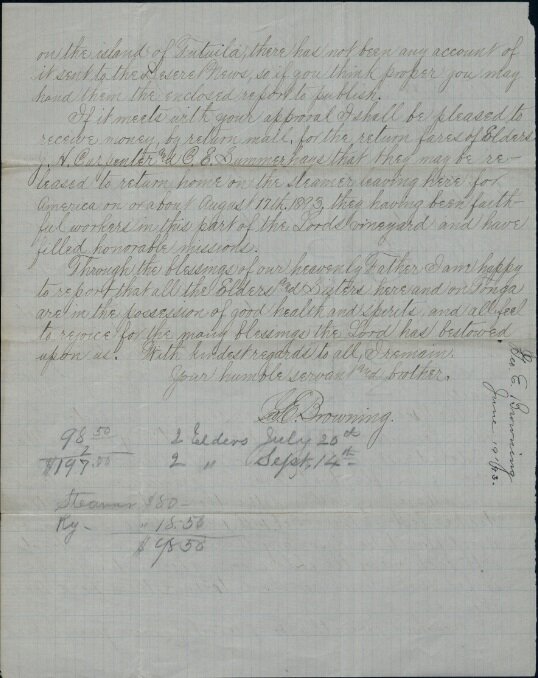 on the island of Tutuila, there has not been any account of
it sent to the Deseret News, so if you think proper you may
hand them the enclosed report to publish.
If it meets with your approval I shall be pleased to
receive money, by return mail, for the return fares of Elders
J. A. Carpenter and C. E. Summerhays that they may be re-
leased to return home on the steamer leaving here for
America on or about August 17th, 1893, they having been faith-
ful workers in this part of the Lords vineyard and have
filled honorable missions.
Through the blessings of our heavenly Father I am happy
to report that all the Elders and Sisters here and on Tonga
are in the possession of good health and spirits, and all feel
to rejoice for the many blessings the Lord has bestowed
upon us. With kindest regards to all, I remain
Your humble servant and brother.
Geo. E. Browning.
98 50
2
$197.00
2 Elders July 20th
2 " Sept. 14th
Steamer $80-
Ry- " 18.50
$ 98.50
Geo. E. Browning
June 19/93.